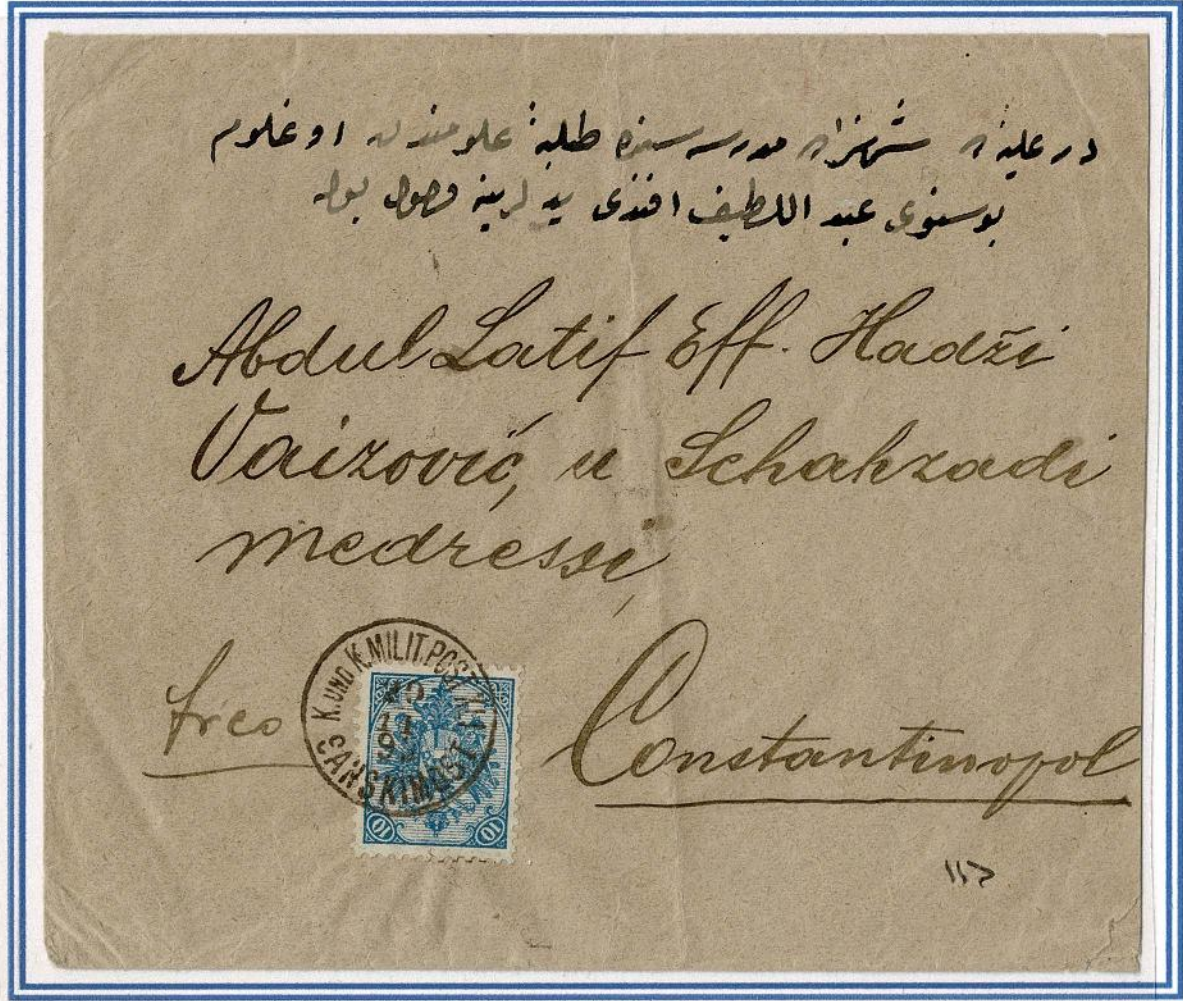 در عليه ده شهزاده مدرسه سنده طلبۀ علومندن اوغلوم
بوسنوى عبد اللطيف افندى يدلرينه وصول بوله
Abdul Latif Eff. Hadži
Vaizović, u Schahzadi
medressi,
freo
Constantinopol
K. UND K. MILIT. POST
ČARŠKIMOST
10 10